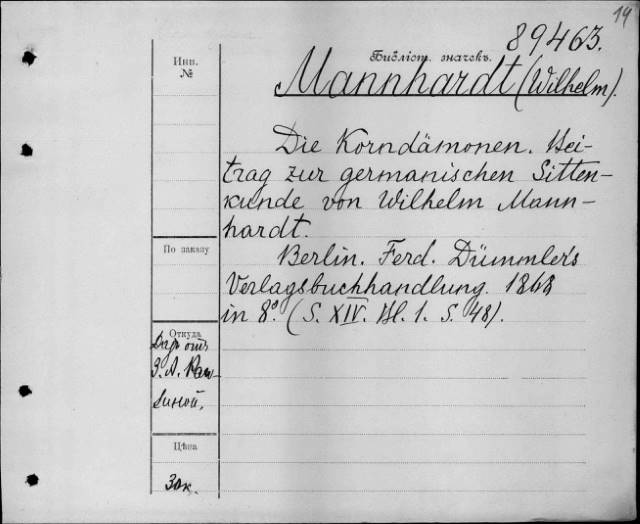 19
89463.
Инв.
№
Библіот. значекъ.
Mannhardt (Wilhelm).
Die Korndämonen. Bei-
trag zur germanischen Sitten-
kunde von Wilhelm Mann-
hardt.
По заказу
Berlin. Ferd. Dümmler's
Verlagsbuchhandlung. 1868
in 8º. (S. XIV. Bl. 1. S. 48).
Откуда
Даръ отъ
З. А. Раг-
Цѣна
30к.